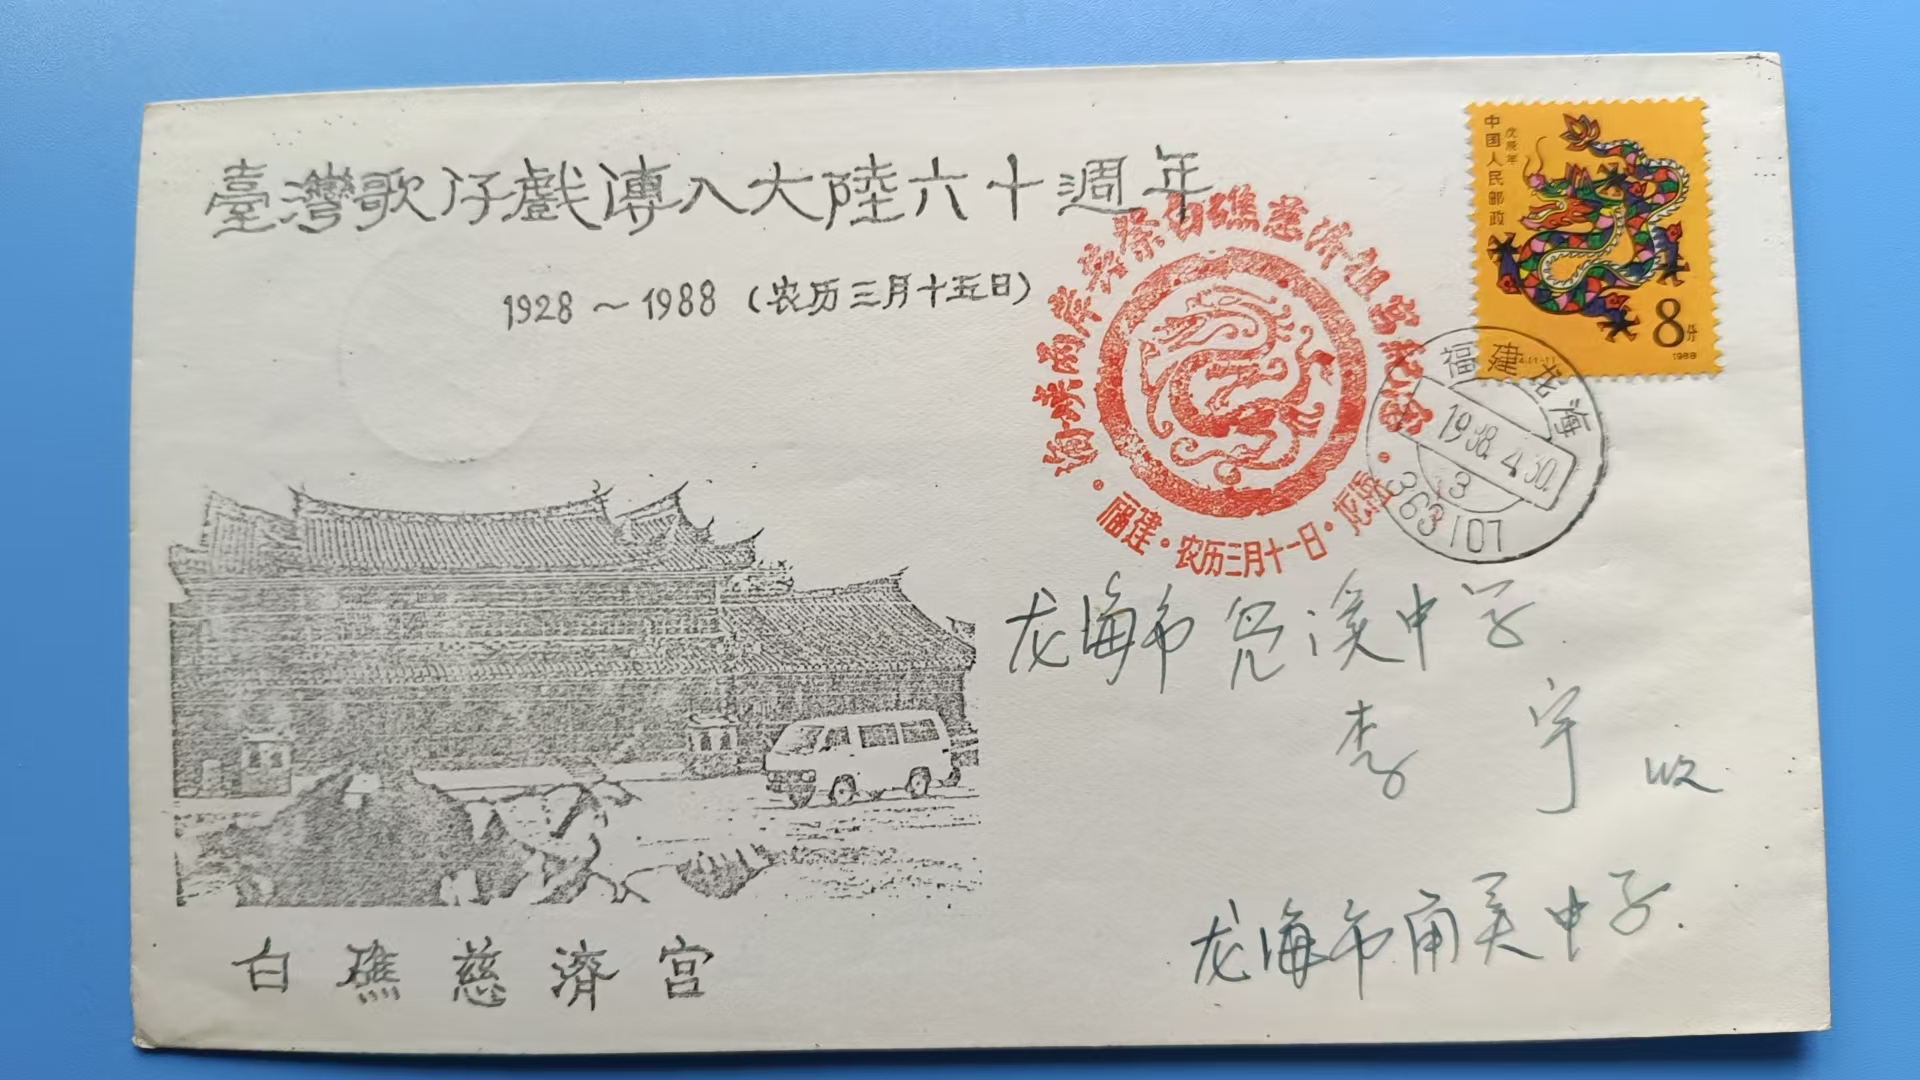 臺灣歌仔戲傳入大陸六十週年
1928～1988（农历三月十五日）
中国人民邮政
戊辰年
8分
1988
海峡兩岸共祭白礁慈济祖宫纪念
福建·农历三月十一日·龙海
福建龙海
1988.4.30.
3
363107
龙海市角溪中学
李宇收
龙海市角美中学
白礁慈濟宫